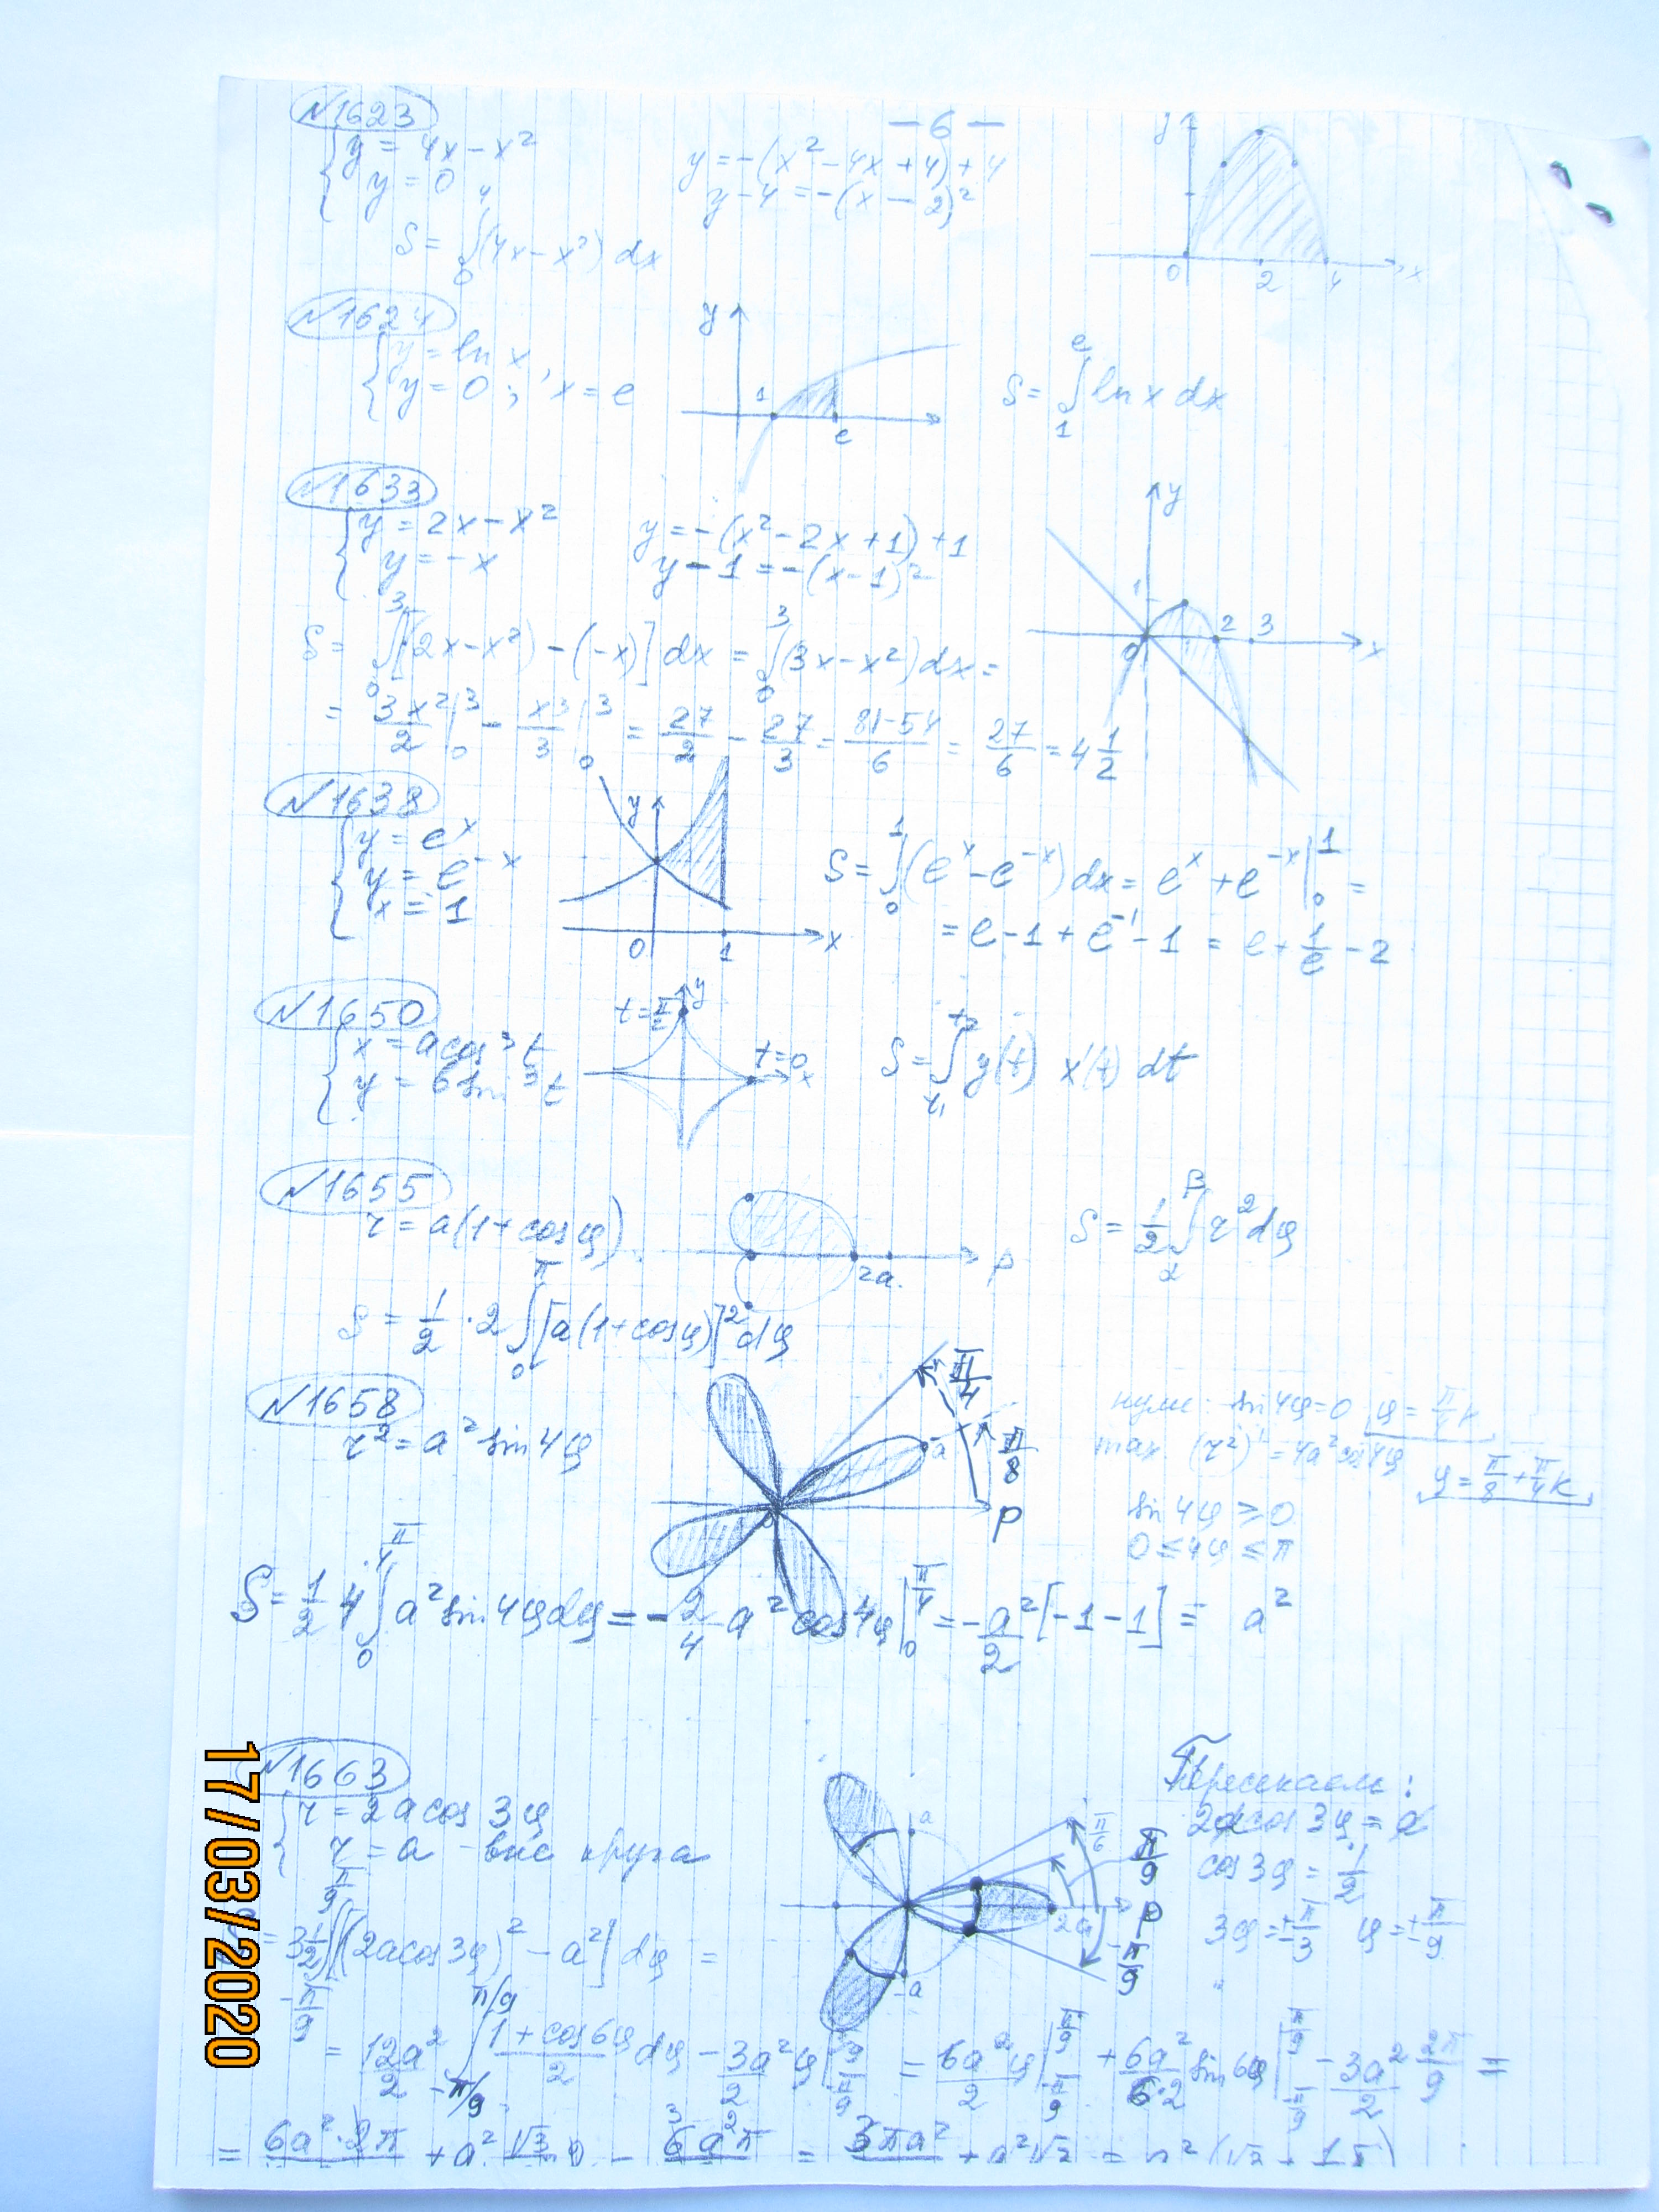 - 6 -
N1623
{ y = 4x - x²
y = 0
y = -(x² - 4x + 4) + 4
y - 4 = -(x - 2)²
y 0 2 4 x
S = ∫₀⁴ (4x - x²) dx
N1624
{ y = ln x,
y = 0 ; x = e
y 1 e
S = ∫₁ᵉ ln x dx
N1633
{ y = 2x - x²
y = -x
y = -(x² - 2x + 1) + 1
y - 1 = -(x - 1)²
y 1 0 2 3 x
S = ∫₀³ [(2x - x²) - (-x)] dx = ∫₀³ (3x - x²) dx =
= 3x²/2 |₀³ - x³/3 |₀³ = 27/2 - 27/3 = 81-54/6 = 27/6 = 4 1/2
N1638
{ y = eˣ
y = e⁻ˣ
x = 1
y 0 1 x
S = ∫₀¹ (eˣ - e⁻ˣ) dx = eˣ + e⁻ˣ |₀¹ =
= e - 1 + e⁻¹ - 1 = e + 1/e - 2
N1650
{ x = a cos³ t
y = b sin³ t
t = π/2 y t = 0 x
S = ∫ y(t) x'(t) dt
N1655
r = a(1 + cos φ)
2a p
S = 1/2 ∫_α^β r² dφ
S = 1/2 · 2 ∫₀^π [a(1 + cos φ)]² dφ
N1658
r² = a² sin 4φ
π/4 a π/8 p
нули: sin 4φ = 0 φ = π/4 k
max. (r²)' = 4a² cos 4φ φ = π/8 + π/4 k
sin 4φ ≥ 0
0 ≤ 4φ ≤ π
S = 1/2 4 ∫₀^(π/4) a² sin 4φ dφ = - 2/4 a² cos 4φ |₀^(π/4) = - a²/2 [-1 - 1] = a²
N1663
{ r = 2a cos 3φ
r = a - вне круга
a π/6 π/9 2a p -π/9 -a
Пересекаем:
2a cos 3φ = a
cos 3φ = 1/2
3φ = ± π/3 φ = ± π/9
= 3 1/2 ∫_(-π/9)^(π/9) [(2a cos 3φ)² - a²] dφ =
= 12a²/2 ∫_(-π/9)^(π/9) 1 + cos 6φ/2 dφ - 3a²/2 φ |_(-π/9)^(π/9) = 6a²/2 φ |_(-π/9)^(π/9) + 6a²/6·2 sin 6φ |_(-π/9)^(π/9) - 3a²/2 2π/9 =
17/03/2020